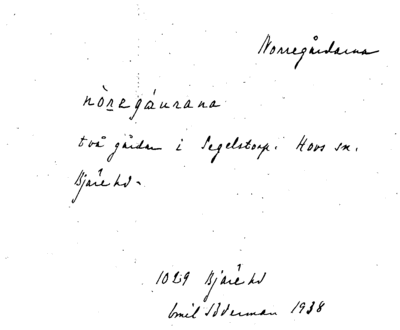 Norregårdarna
nòregáurana
två gårdar i Segelstorp. Hovs sn.
Bjäre hd.
1029 Bjäre hd
Emil Söderman 1938